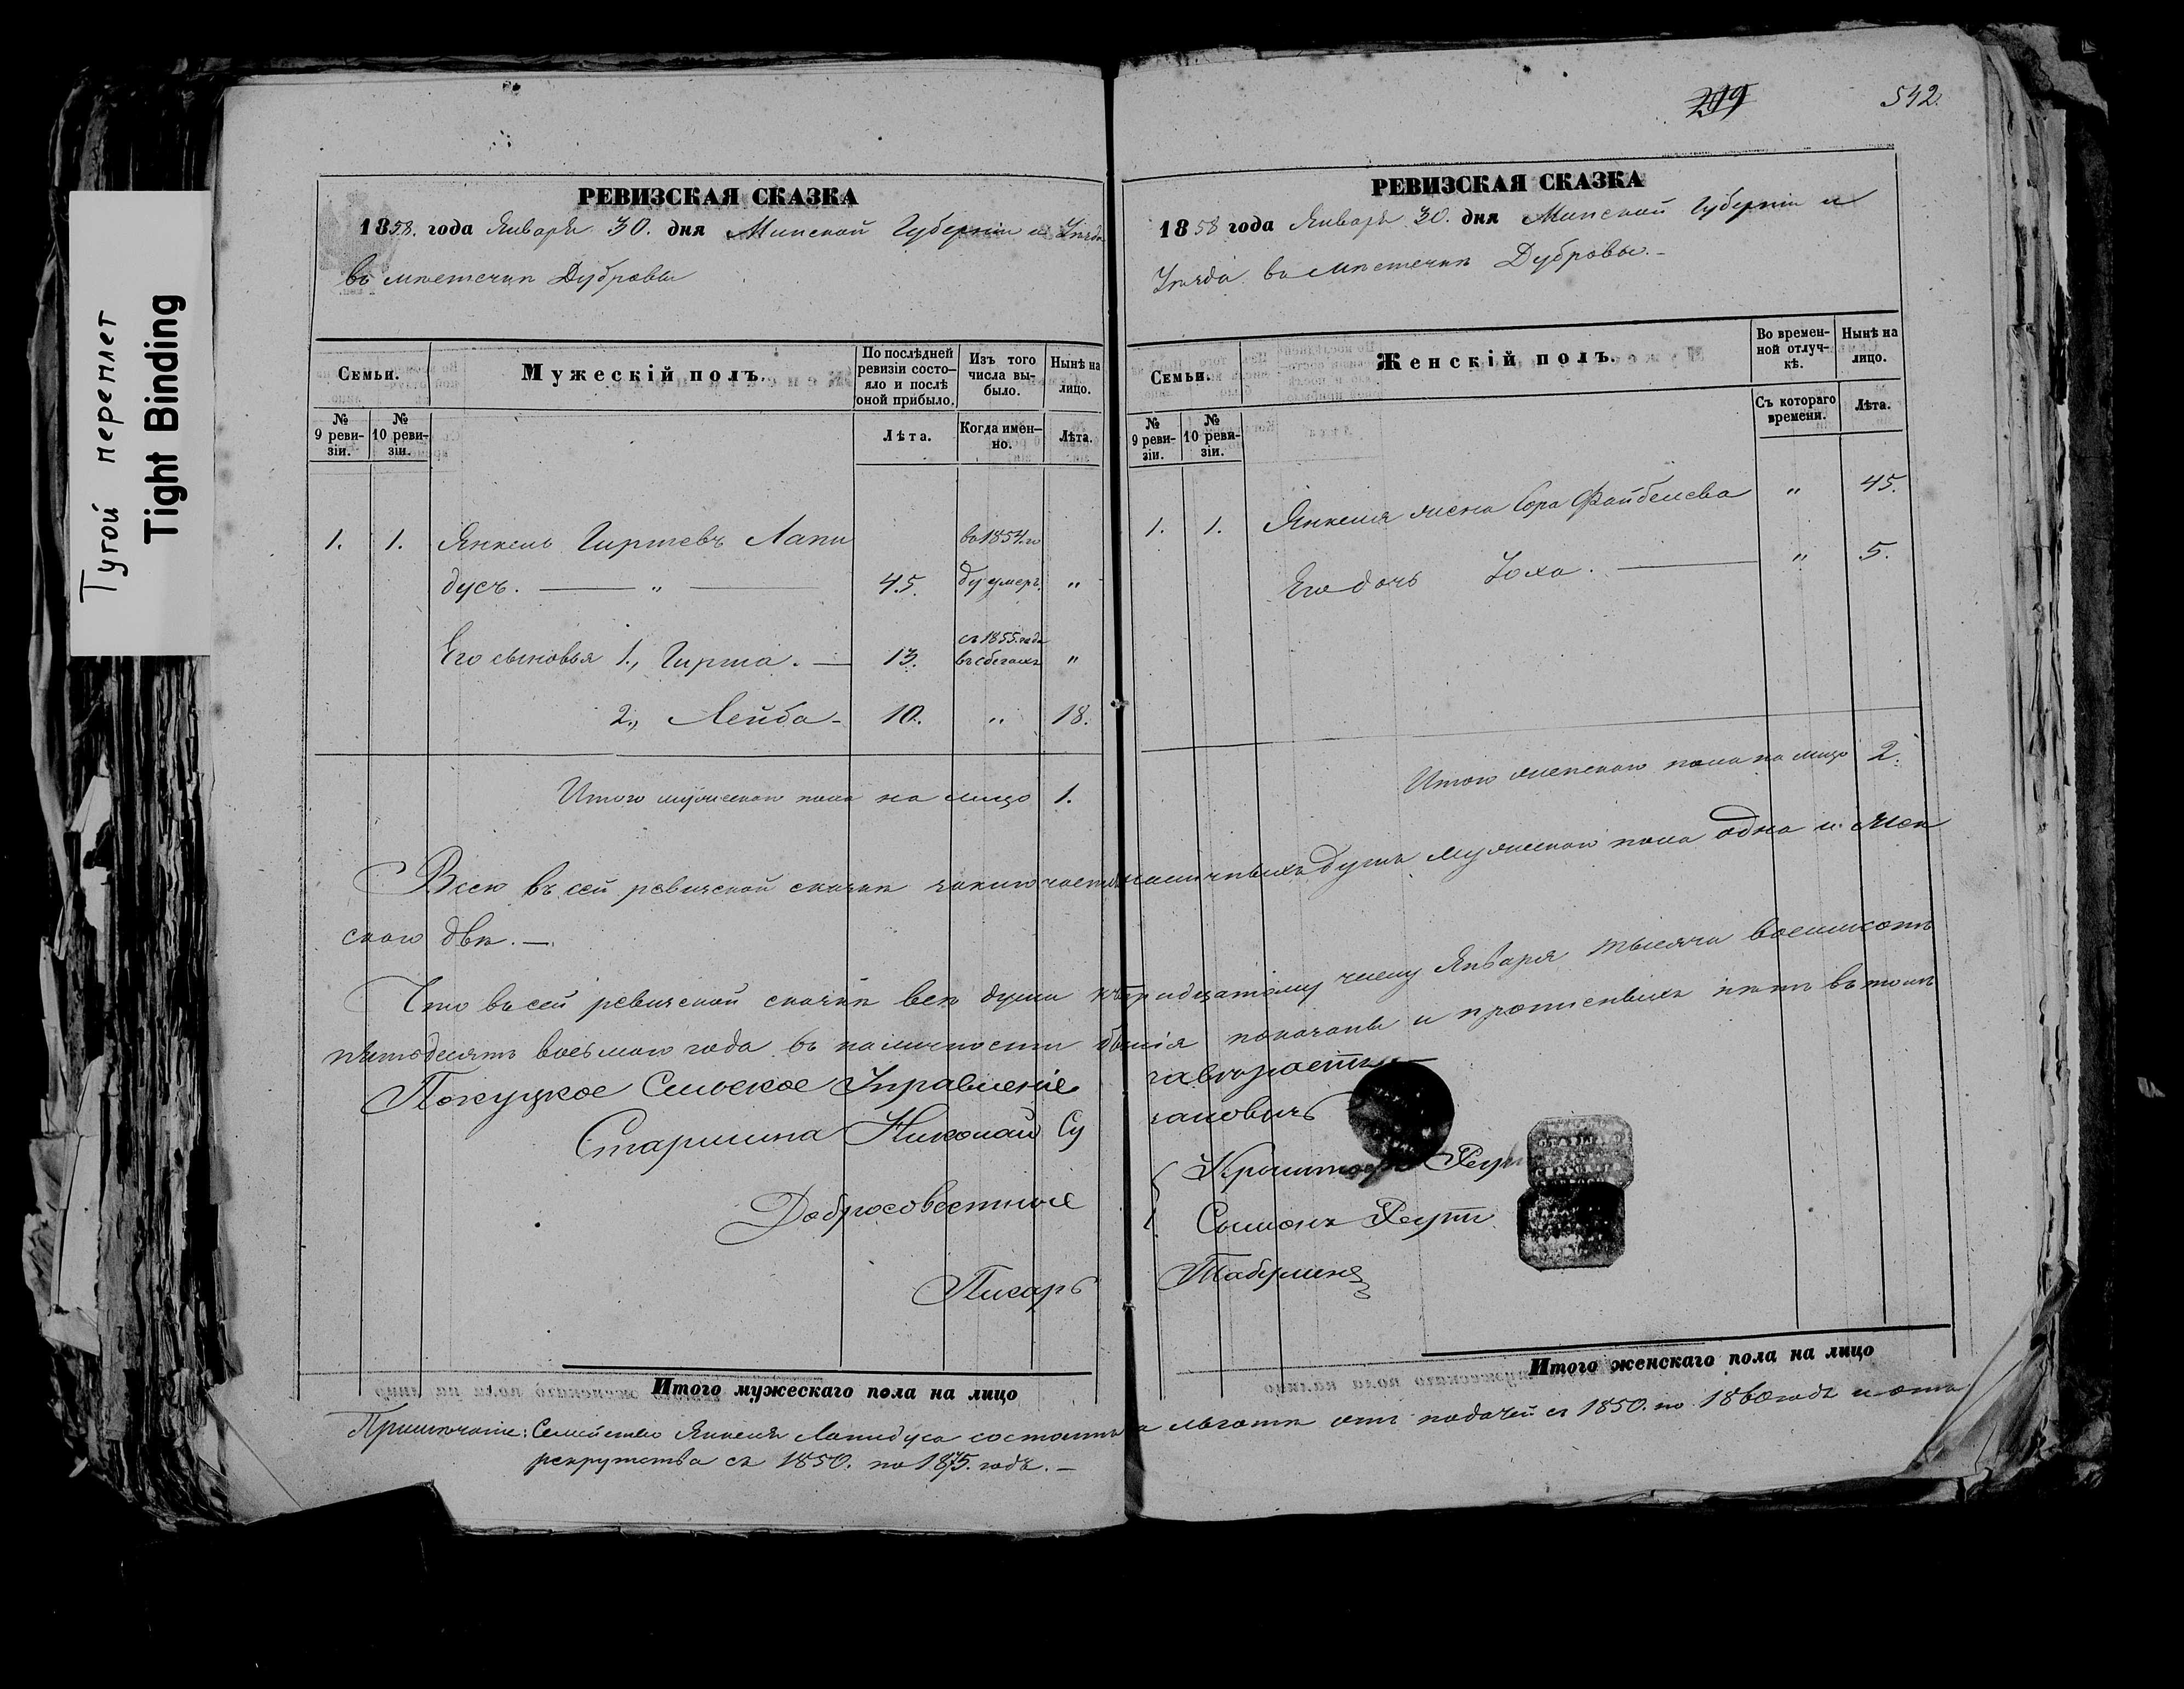 Тугой переплет
Tight Binding
РЕВИЗСКАЯ СКАЗКА
1858. года Января 30. дня Минской Губерніи и Уѣзда
въ мѣстечкѣ Дубровы
Семьи.
Мужескій полъ.
По послѣдней ревизіи состояло и послѣ оной прибыло.
Изъ того числа выбыло.
Нынѣ на лицо.
№ 9 ревизіи.
№ 10 ревизіи.
Лѣта.
Когда именно.
Лѣта.
1. 1. Янкель Гиршевъ Лапи въ 1854.го
дусъ. — " — 45. ду умеръ. "
Его сыновья 1., Гирша. — 13. съ 1855. года въ бегахъ "
2., Лейба - 10. " 18.
Итого мужескаго пола на лицо 1.
299 542.
РЕВИЗСКАЯ СКАЗКА
1858 года Января 30. дня Минской Губерніи и
Уѣзда въ мѣстечкѣ Дубровы. -
Семьи.
Женскій полъ.
Во временной отлучкѣ.
Нынѣ на лицо.
№ 9 ревизіи.
№ 10 ревизіи.
Съ котораго времени.
Лѣта.
1. 1. Янкеля жена Сора Файбелева " 45.
Его дочь Хоха. — " 5.
Итого женскаго пола на лицо 2.
Всего въ сей ревизской сказкѣ заключается наличныхъ душъ мужескаго пола одна и жен
скаго двѣ. —
Что въ сей ревизской сказкѣ всѣ души къ тридцатому числу Января тысяча восемьсотъ
пятьдесятъ восьмого года въ наличности бывшія показаны и прописныхъ нѣтъ въ томъ
Сельское Управленіе
Старшина Николай Су
Добросовестные
Симонъ Реутъ
Писарь
Итого мужескаго пола на лицо
Итого женскаго пола на лицо
Примѣчаніе: Семейство Янкеля Лапидуса состоитъ на льготѣ отъ податей съ 1850. по 1860 годъ и отъ
рекрутства съ 1850. по 1875. годъ. —